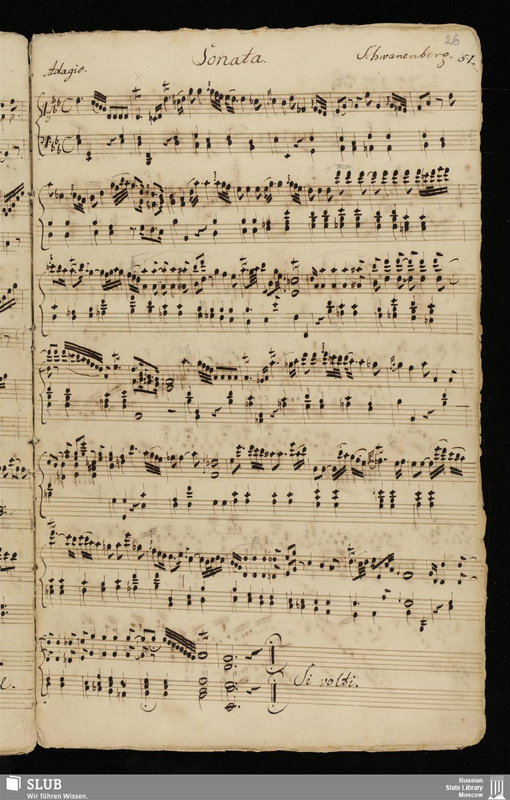 26
Sonata.
Schwanenberg. 51.
Adagio.
Si volti.
SLUB
Wir führen Wissen.
Russian
State Library
Moscow